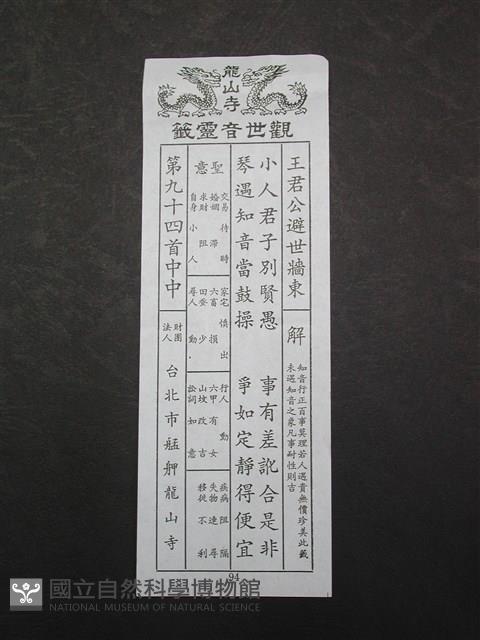 龍山寺
觀世音靈籤
王君公避世牆東
解
知音行正百事莫理若人遇貴無價珍美此籤
未遇知音之象凡事耐性則吉
小人君子別賢愚
事有差訛合是非
琴遇知音當鼓操
爭如定靜得便宜
聖意
交易待時
婚姻滯
求財阻
自身小人
家宅慎出
六畜損
田蚕少
尋人動
行人動
六甲有女
山墳改吉
訟詞如意
疾病阻隔
失物速尋
移徙不利
第九十四首中中
財團法人
台北市艋舺龍山寺
94
國立自然科學博物館
NATIONAL MUSEUM OF NATURAL SCIENCE